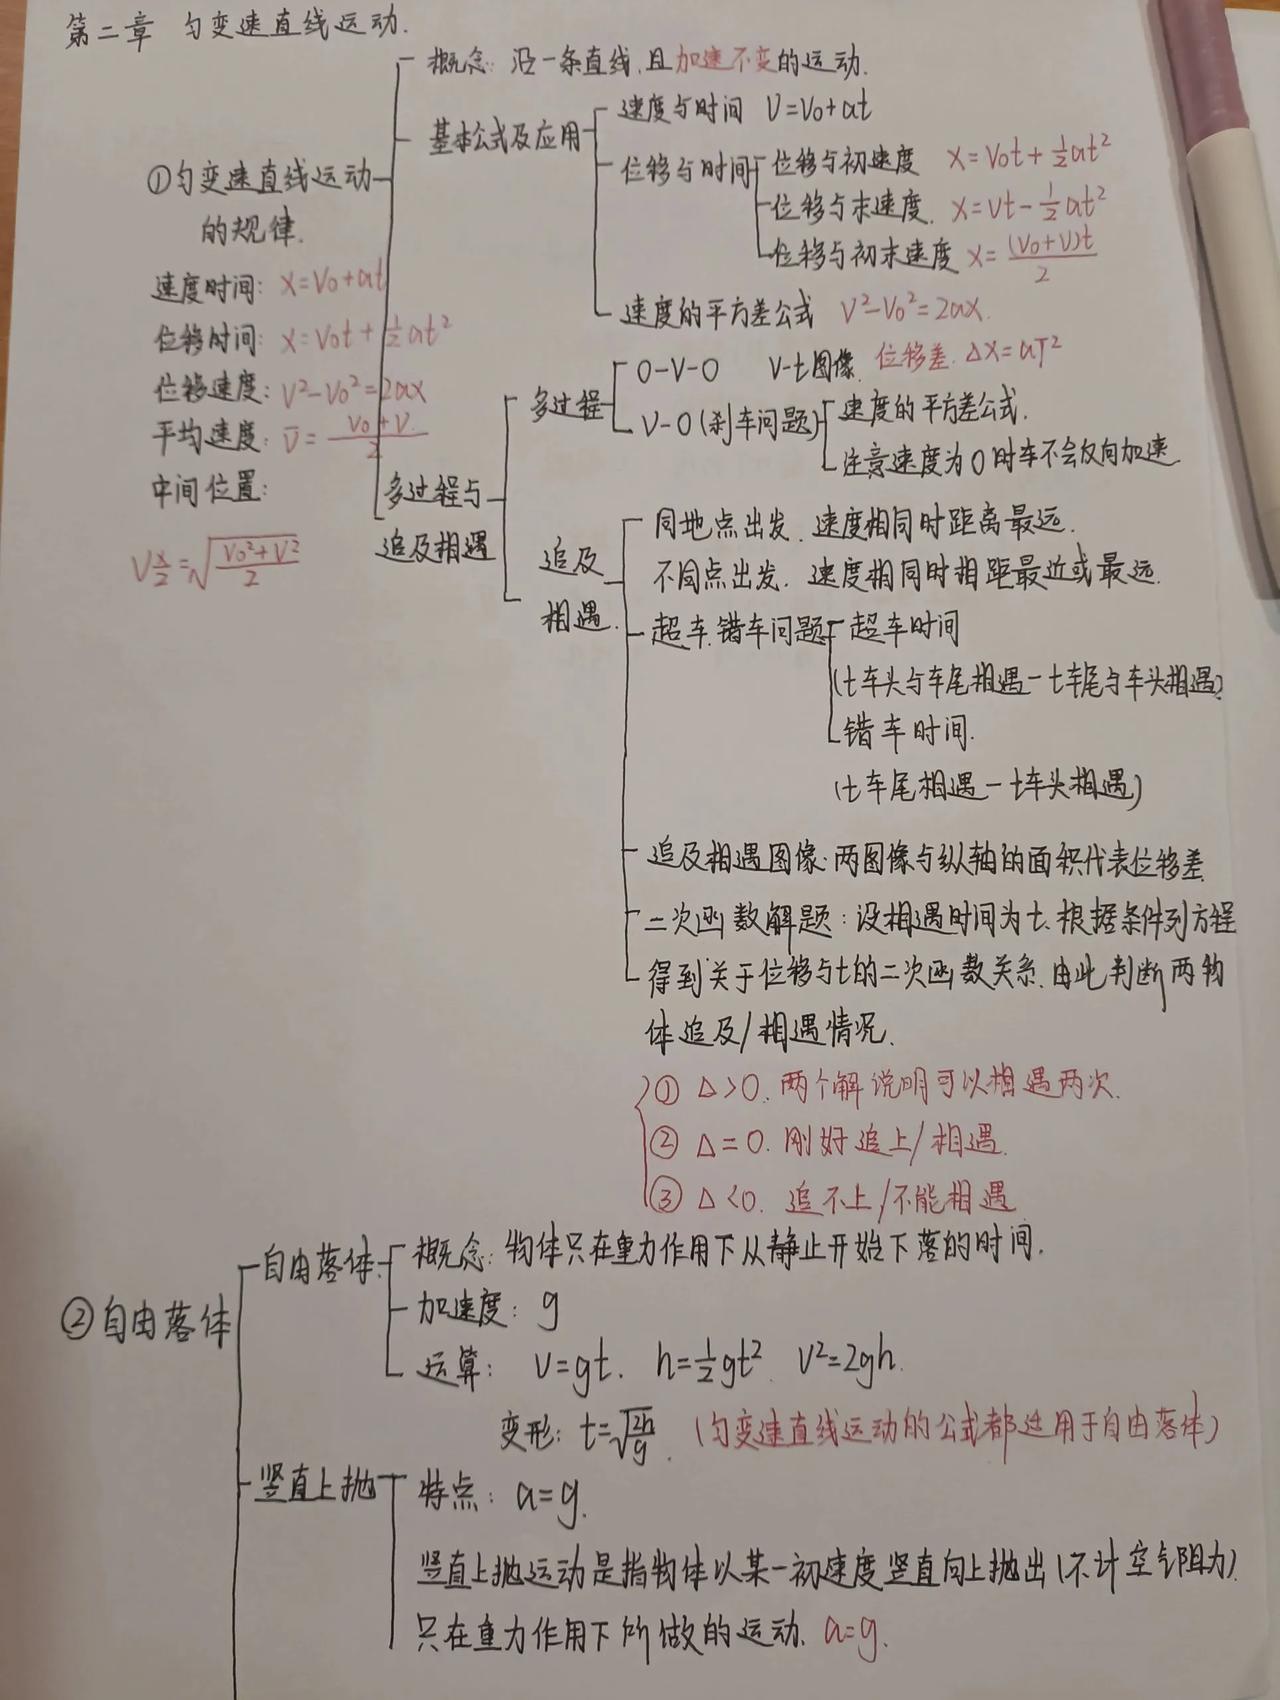 第二章 匀变速直线运动.
概念: 沿一条直线,且加速不变的运动.
基本公式及应用
速度与时间 V=V₀+at
①匀变速直线运动的规律.
位移与时间
位移与初速度 X=V₀t+½at²
位移与末速度. X=Vt-½at²
位移与初末速度 X=(V₀+V)t/2
速度的平方差公式 V²-V₀²=2ax.
速度时间: X=V₀+at
位移时间: X=V₀t+½at²
位移速度: V²-V₀²=2ax
平均速度: V̄=(V₀+V)/2
中间位置:
Vx/2=√((V₀²+V²)/2)
多过程与追及相遇
多过程
0-V-0 V-t图像. 位移差. ΔX=aT²
V-0(刹车问题)
速度的平方差公式.
注意速度为0时车不会反向加速
追及相遇.
同地点出发. 速度相同时距离最远.
不同点出发. 速度相同时相距最近或最远.
超车.错车问题
超车时间
(t车头与车尾相遇-t车尾与车头相遇)
错车时间.
(t车尾相遇-t车头相遇)
追及相遇图像:两图像与纵轴的面积代表位移差.
二次函数解题: 设相遇时间为t.根据条件列方程
得到关于位移与t的二次函数关系.由此判断两物
体追及/相遇情况.
① Δ>0. 两个解说明可以相遇两次.
② Δ=0. 刚好追上/相遇.
③ Δ<0. 追不上/不能相遇
②自由落体
自由落体.
概念: 物体只在重力作用下从静止开始下落的时间.
加速度: g
运算: V=gt. h=½gt² V²=2gh.
变形: t=√(2h/g). (匀变速直线运动的公式都适用于自由落体)
竖直上抛
特点: a=g.
竖直上抛运动是指物体以某一初速度竖直向上抛出(不计空气阻力).
只在重力作用下所做的运动. a=g.